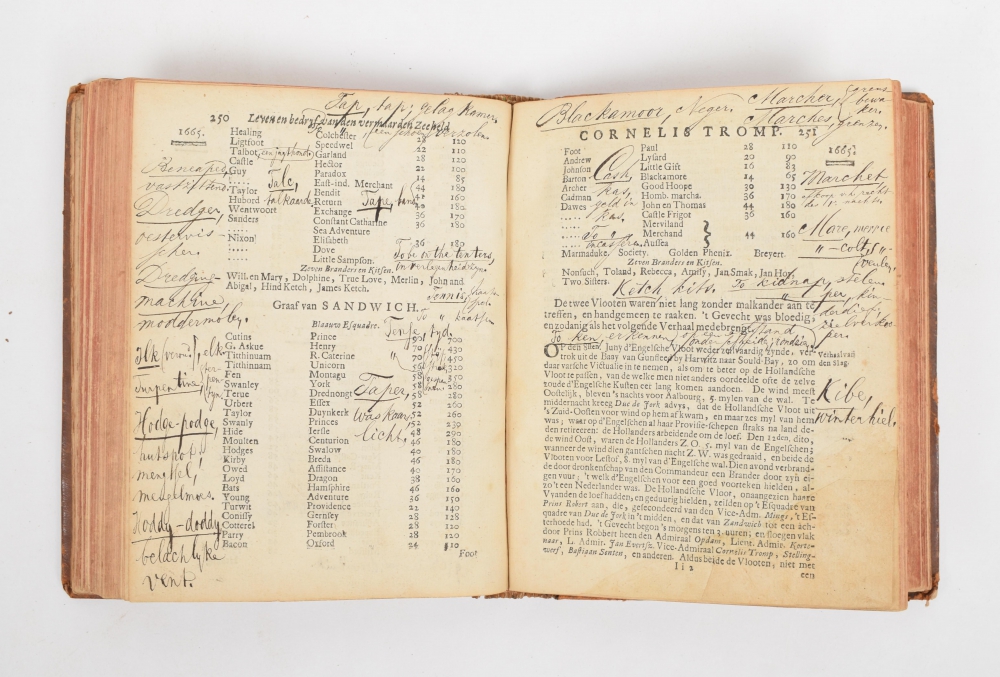 Tap, tap; gelag kamer,
250 Leven en bedryf van den vermaarden Zeeheld
1665.
Healing Colchester 28 110
Ligtfoot Speedwel 22 120
Talbot Garland 28 120
Castle Hector 22 100
Guy Paradox 14 85
..... East-ind. Merchant 44 180
Taylor Bendit 40 180
Hubord Return
Wentworth Exchange 36 170
Sanders Constant Catharine 36 160
..... Sea Adventure
Nixon Elisabeth 36 180
..... Dove
..... Little Sampson.
Zeven Branders en Kitsen.
Will. en Mary, Dolphine, True Love, Merlin, John and
Abigal, Hind Ketch, James Ketch.
Talc,
talkaarde
Tape, band
Dredger,
oestervis-
scher.
Dredging
machine,
moddermolen.
To be on the tenters,
in verlegenheid zyn.
Tennis,
To " kaatsen
Graaf van SANDWICH.
Blaauwe Esquadre.
Tense, tyd.
Cutins Prince 90 700
G. Askue Henry 70 430
Titthinuam R. Caterine 70 450
Titthinuam Unicorn 56 320
Fen Montagu 58 350
Swanley York 58 280
Terue Drednongt 58 280
Urbert Essex 52 260
Taylor Duynkerk 52 260
Swanly Princes 52 290
Hide Jersle 48 230
Moulten Centurion 46 180
Hodges Swalow 40 180
Kirby Breda 46 180
Owed Assistance 40 170
Loyd Dragon 38 160
Bats Hamshire 46 160
Young Adventure 36 150
Torwit Providence 22 140
Coniffy Gernsey 28 128
Cotterel Forster 28 120
Parry Pembrook 28 120
Bacon Oxford 24 110
Foot
Taper,
waskaars,
licht.
Ilk
Hodge-podge,
hutspot,
mengsel,
mengelmoes.
Hoddy-doddy
belachlyke
vent.
Blackamoor, Neger. Marcher, grens
bewa-
ker.
Marches, grenzen.
CORNELIS TROMP. 251
1665.
Foot Paul 28 110
Andrew Lysard 20 90
Johnson Little Gift 16 83
Barton Blackamore 14 65
Archer Good Hoope 30 130
Cadman Homb. marcha. 36 170
Dawes John en Thomas 44 180
..... Castle Frigot 36 160
..... Merviland
..... Merchand 44 160
..... Aussea
Marmaduke, Society. Golden Phenix. Breyert.
Zeven Branders en Kitsen.
Nonsuch, Toland, Rebecca, Amity, Jan Smak, Jan Hoy,
Two Sisters.
Cash,
kas,
geld in
kas.
To "
incasseren.
Marchet
Mare, merrie
"-colt,
veulen.
Ketch kits. To kidnap, stelen
per, kin-
derdief,
zielverkoo-
per.
De twee Vlooten waren niet lang zonder malkander aan te
treffen, en handgemeen te raaken. 't Gevecht was bloedig,
en zodanig als het volgende Verhaal medebrengt.
To ken, erkennen
Verhaal van
den Slag.
OP den 11den Juny d'Engelsche Vloot weder zuilvaardig zynde, ver-
trok uit de Baay van Gunsfleet by Harwitz naar Sould-Bay, zo om
daar varsche Victualie in te nemen, als om te beter op de Hollandsche
Vloot te passen, van de welke men niet anders oordeelde ofte de zelve
zoude d'Engelsche Kusten eer lang komen aandoen. De wind meest
Oostelijk, bleven 's nachts voor Aalbourg, 5. mylen van de wal. Te
middernacht kreeg Duc de Jork advys, dat de Hollandsche Vloot uit
't Zuid-Oosten voor wind op hem af kwam, en maar zes myl van hem
was; waar op d'Engelschen al haar Provisie-schepen straks na land de-
den retireeren: de Hollanders arbeidende om de loef. Den 12den. dito,
de wind Oost, waren de Hollanders Z. O. 5. myl van de Engelschen;
wanneer de wind dien gantschen nacht Z. W. was gedraaid, en beide de
Vlooten voor Lestof, 8. myl van d'Engelsche wal. Dien avond verbrand-
de door dronkenschap van den Commandeur een Brander door zyn ei-
gen vuur; 't welk d'Engelschen voor een goed voorteken hielden, al-
zo 't een Nederlander was. De Hollandsche Vloot, onaangezien haare
Vyanden de loef hadden, en geduurig hielden, zeilden op 't Esquadre van
Prins Robert aan, die, gesecondeerd van den Vice-Adm. Mings, 't Es-
quadre van Duc de Jork in 't midden, en dat van Zandwich tot een ach-
terhoede had. 't Gevecht begon 's morgens ten 3. uuren; en sloegen vlak
door Prins Robbert heen den Admiraal Opdam, Lieut. Admir. Korte-
naar, L. Admir. Jan Evertsz. Vice-Admiraal Cornelis Tromp, Stelling-
werf, Bastiaan Senten, en anderen. Aldus beide de Vlooten, niet met
Iiz een
Kibe,
winterhiel.